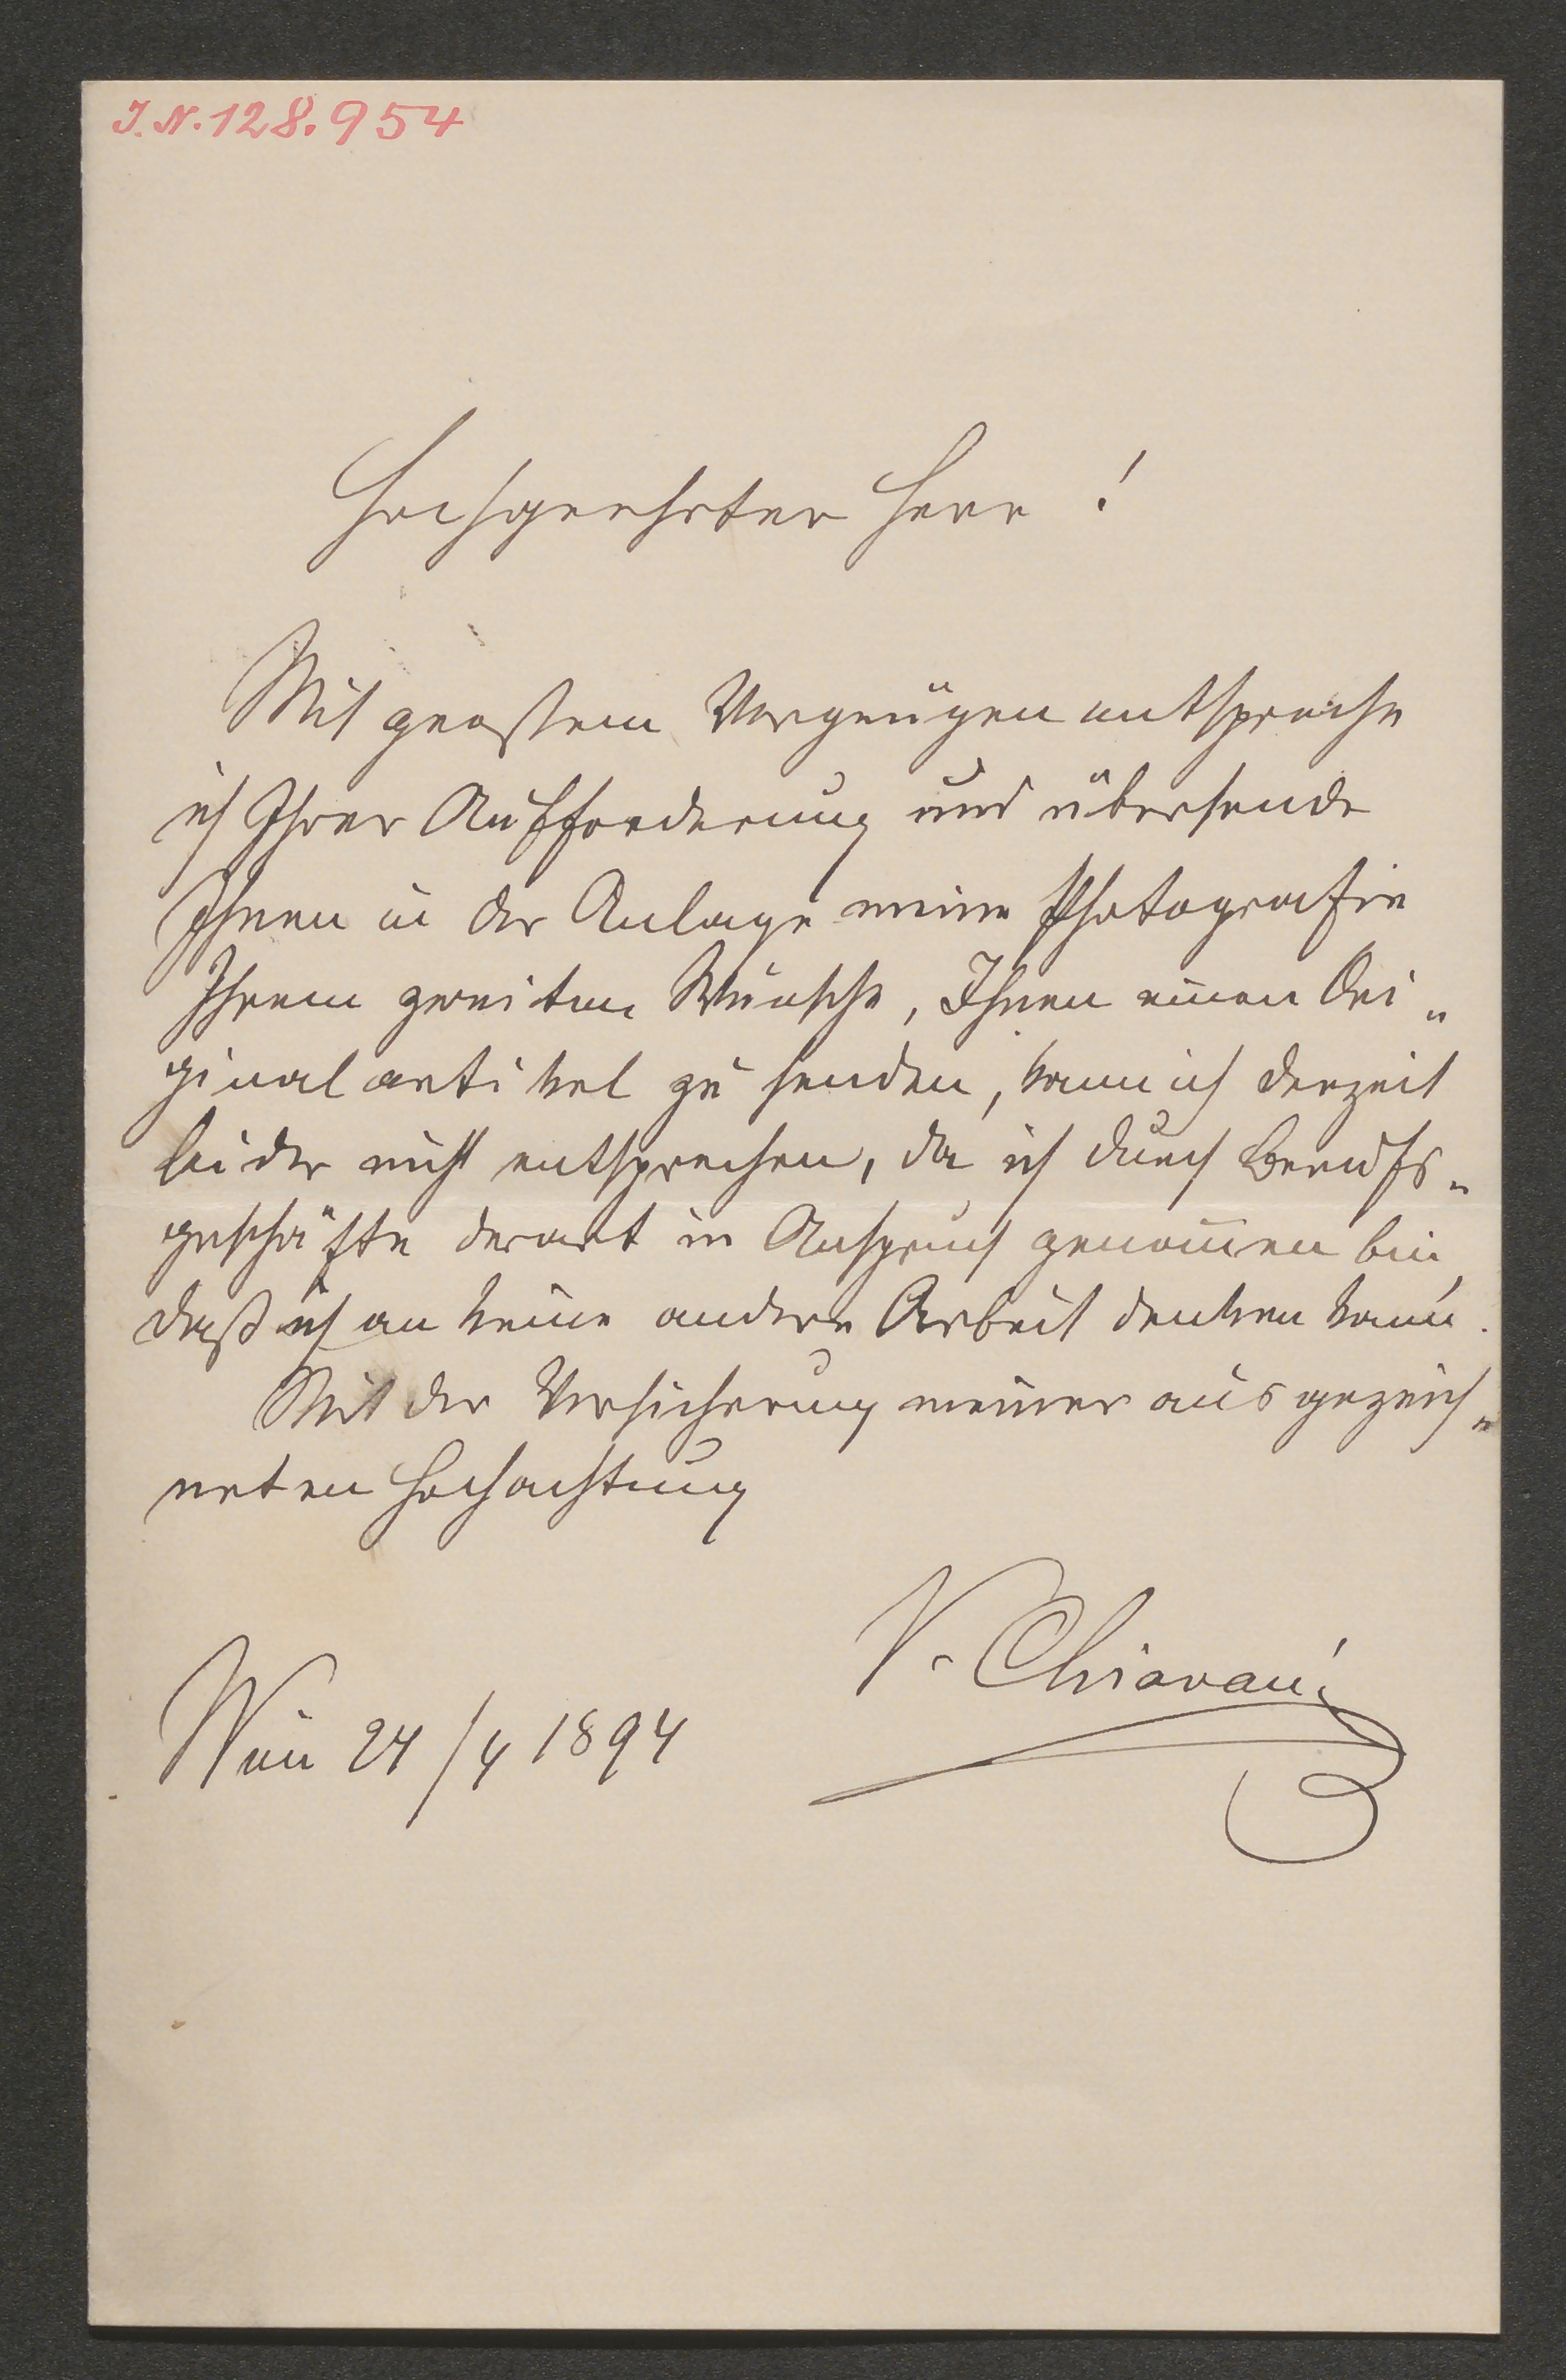 J.N. 128.954
Hochgeehrter Herr!
Mit großem Vergnügen entspreche
ich Ihrer Aufforderung und übersende
Ihnen in der Anlage meine Photografie
Ihrem zweiten Wunsche, Ihnen einen Ori„
ginalartikel zu senden, kann ich derzeit
leider nicht entsprechen, da ich durch Berufs„
geschäfte derart in Anspruch genom̅en bin,
daß ich an keine andere Arbeit denken kann.
Mit der Versicherung meiner ausgezeich„
neten Hochachtung
V. Chiavani
Wien 24/4 1894